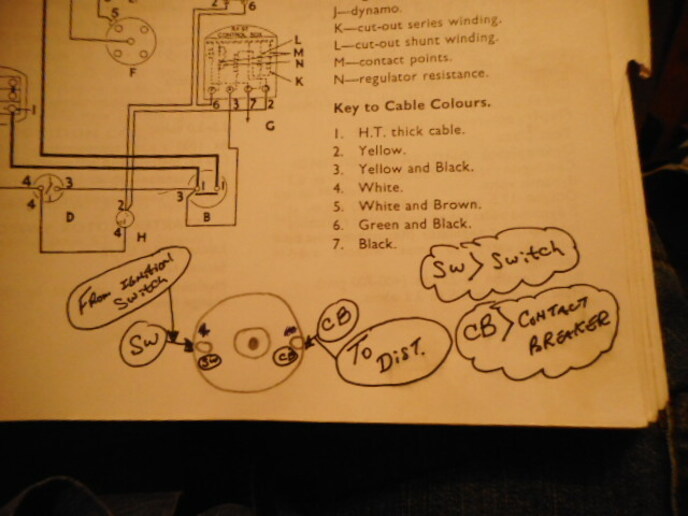 J—dynamo.
K—cut-out series winding.
L—cut-out shunt winding.
M—contact points.
N—regulator resistance.
Key to Cable Colours.
1. H.T. thick cable.
2. Yellow.
3. Yellow and Black.
4. White.
5. White and Brown.
6. Green and Black.
7. Black.
5
F
2
6
CONTROL BOX
L
M
N
K
6
3
7
2
G
1
4
3
4
D
2
4
H
3
1
1
B
FROM IGNITION
SWITCH
SW
SW
CB
CB
TO
DIST.
SW > Switch
CB > CONTACT
BREAKER